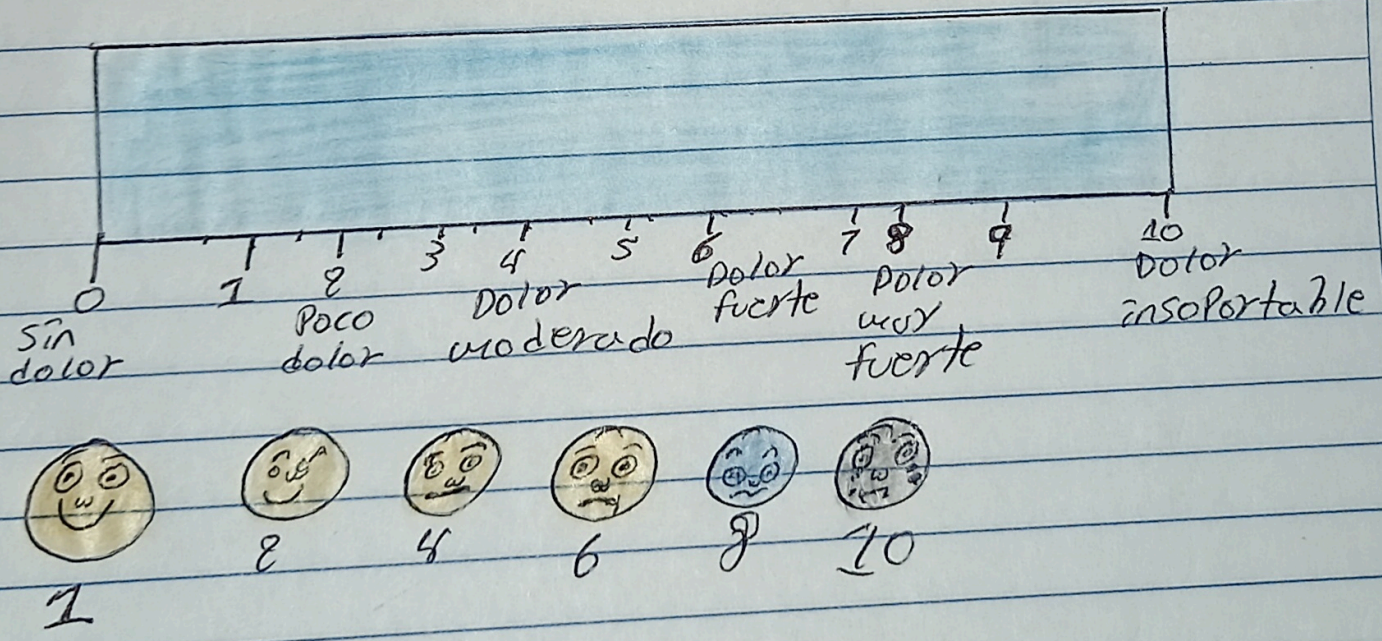 0 1 2 3 4 5 6 7 8 9 10
Sin
dolor
Poco
dolor
Dolor
moderado
Dolor
fuerte
Dolor
muy
fuerte
Dolor
insoportable
1 2 4 6 8 10